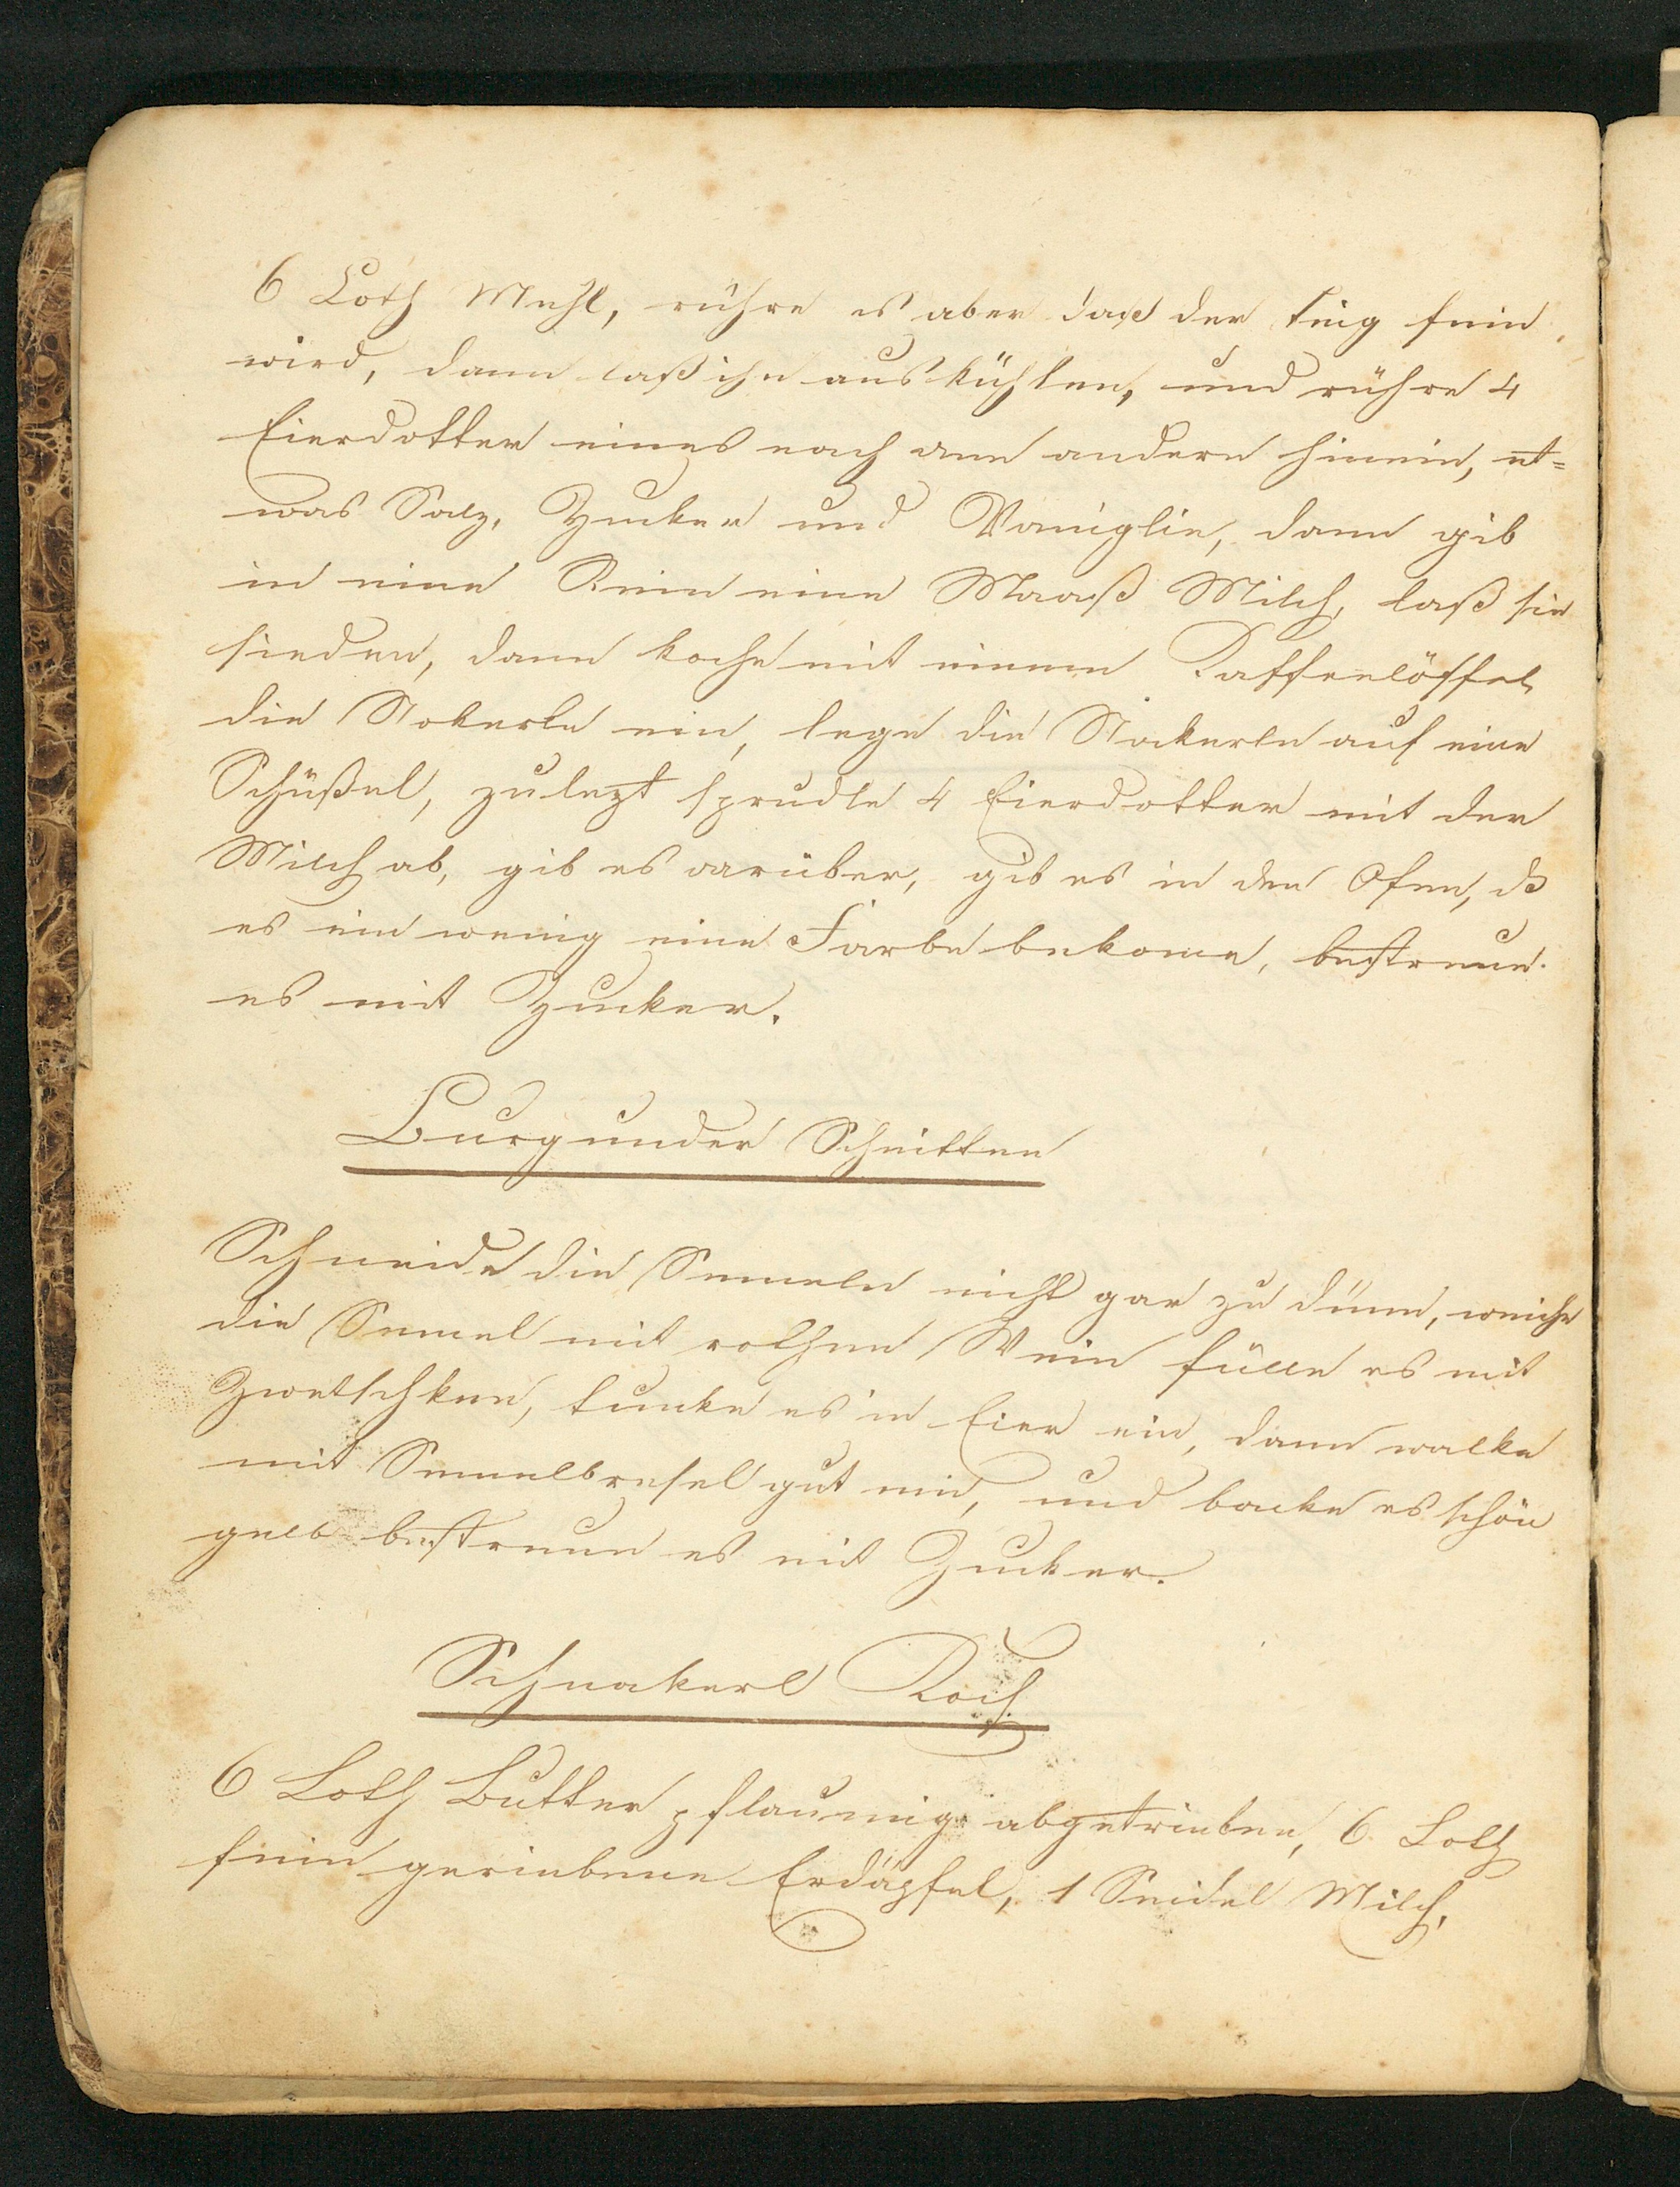 6 Loth Mehl, rühre es aber daß der Teig fein
wird, dann laß ihn auskühlen, und rühre 4
Eierdotter eines nach dem andern hinein, et=
was Salz, Zucker und Vaniglie, dann gib
in eine Rein eine Maaß Milch, laß sie
sieden, dann koche mit einem Kaffeelöffel
die Nokerln ein, lege die Nockerln auf eine
Schüßel, zulezt sprudle 4 Eierdotter mit der
Milch ab, gib es darüber, gib es in den Ofen, dß
es ein wenig eine Farbe bekome, bestreue
es mit Zucker.
Burgunder Schnitten
Schneide die Semeln nicht gar zu dünn, weiche
die Semel mit rothen Wein fülle es mit
Zwetschken, tunke es in Eier ein, dann walke
mit Semelbresel gut ein, und backe es schön
gelb bestreue es mit Zucker.
Schnakerl Koch
6 Loth Butter pflaumig abgetrieben, 6 Loth
fein geriebene Erdäpfel, 1 Seidel Milch,